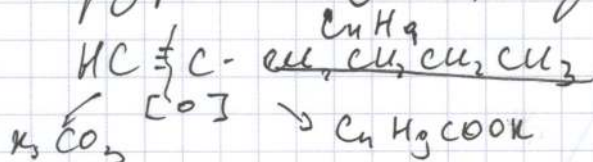 C₄H₉
HC≡C-CH₂CH₂CH₂CH₃
[O]
K₂CO₃ C₄H₉COOK